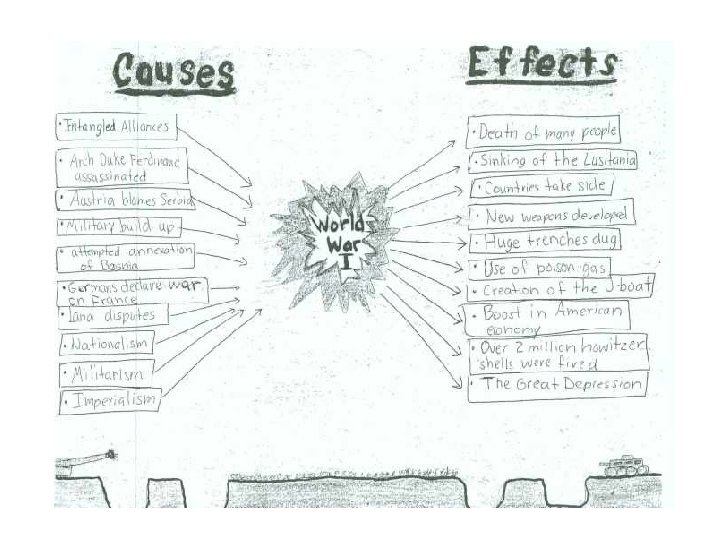 Causes
• Entangled Alliances
• Arch Duke Ferdinand
assassinated
• Austria blames Serbia
• Military build up
• attempted annexation
of Bosnia
• Germans declare war
on France
• Land disputes
• Nationalism
• Militarism
• Imperialism
World
War
I
Effects
• Death of many people
• Sinking of the Lusitania
• Countries take side
• New weapons developed
• Huge trenches dug
• Use of poison gas
• Creation of the U-boat
• Boost in American
economy
• Over 2 million howitzer
shells were fired
• The Great Depression